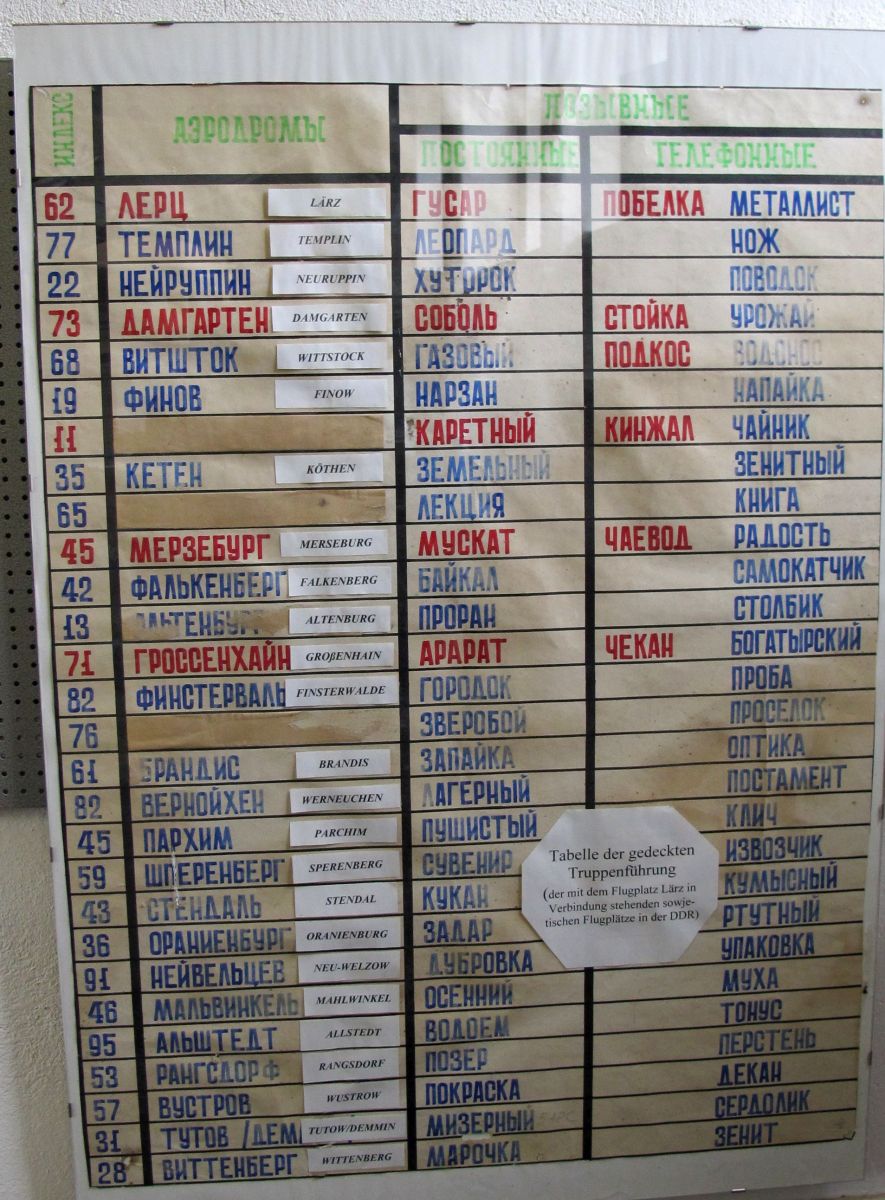 ИНДЕКС АЭРОДРОМЫ ПОЗЫВНЫЕ
ПОСТОЯННЫЕ ТЕЛЕФОННЫЕ
62 ЛЕРЦ LÄRZ ГУСАР ПОБЕЛКА МЕТАЛЛИСТ
77 ТЕМПЛИН TEMPLIN ЛЕОПАРД НОЖ
22 НЕЙРУППИН NEURUPPIN ХУТОРОК ПОВОДОК
73 ДАМГАРТЕН DAMGARTEN СОБОЛЬ СТОЙКА УРОЖАЙ
68 ВИТШТОК WITTSTOCK ГАЗОВЫЙ ПОДКОС ВОДОНОС
19 ФИНОВ FINOW НАРЗАН НАПАЙКА
11 КАРЕТНЫЙ КИНЖАЛ ЧАЙНИК
35 КЕТЕН KÖTHEN ЗЕМЕЛЬНЫЙ ЗЕНИТНЫЙ
65 ЛЕКЦИЯ КНИГА
45 МЕРЗЕБУРГ MERSEBURG МУСКАТ ЧАЕВОД РАДОСТЬ
42 ФАЛЬКЕНБЕРГ FALKENBERG БАЙКАЛ САМОКАТЧИК
13 АЛЬТЕНБУРГ ALTENBURG ПРОРАН СТОЛБИК
71 ГРОССЕНХАЙН GROßENHAIN АРАРАТ ЧЕКАН БОГАТЫРСКИЙ
82 ФИНСТЕРВАЛЬ FINSTERWALDE ГОРОДОК ПРОБА
76 ЗВЕРОБОЙ ПРОСЕЛОК
61 БРАНДИС BRANDIS ЗАПАЙКА ОПТИКА
82 ВЕРНОЙХЕН WERNEUCHEN ЛАГЕРНЫЙ ПОСТАМЕНТ
45 ПАРХИМ PARCHIM ПУШИСТЫЙ КЛИЧ
59 ШПЕРЕНБЕРГ SPERENBERG СУВЕНИР ИЗВОЗЧИК
43 СТЕНДАЛЬ STENDAL КУКАН КУМЫСНЫЙ
36 ОРАНИЕНБУРГ ORANIENBURG ЗАДАР РТУТНЫЙ
91 НЕЙВЕЛЬЦЕВ NEU-WELZOW ДУБРОВКА УПАКОВКА
46 МАЛЬВИНКЕЛЬ MAHLWINKEL ОСЕННИЙ МУХА
95 АЛЬШТЕДТ ALLSTEDT ВОДОЕМ ТОНУС
53 РАНГСДОРФ RANGSDORF ПОЗЕР ПЕРСТЕНЬ
57 ВУСТРОВ WUSTROW ПОКРАСКА ДЕКАН
31 ТУТОВ /ДЕМ TUTOW/DEMMIN МИЗЕРНЫЙ СЕРДОЛИК
28 ВИТТЕНБЕРГ WITTENBERG МАРОЧКА ЗЕНИТ
Tabelle der gedeckten
Truppenführung
(der mit dem Flugplatz Lärz in
Verbindung stehenden sowje-
tischen Flugplätze in der DDR)